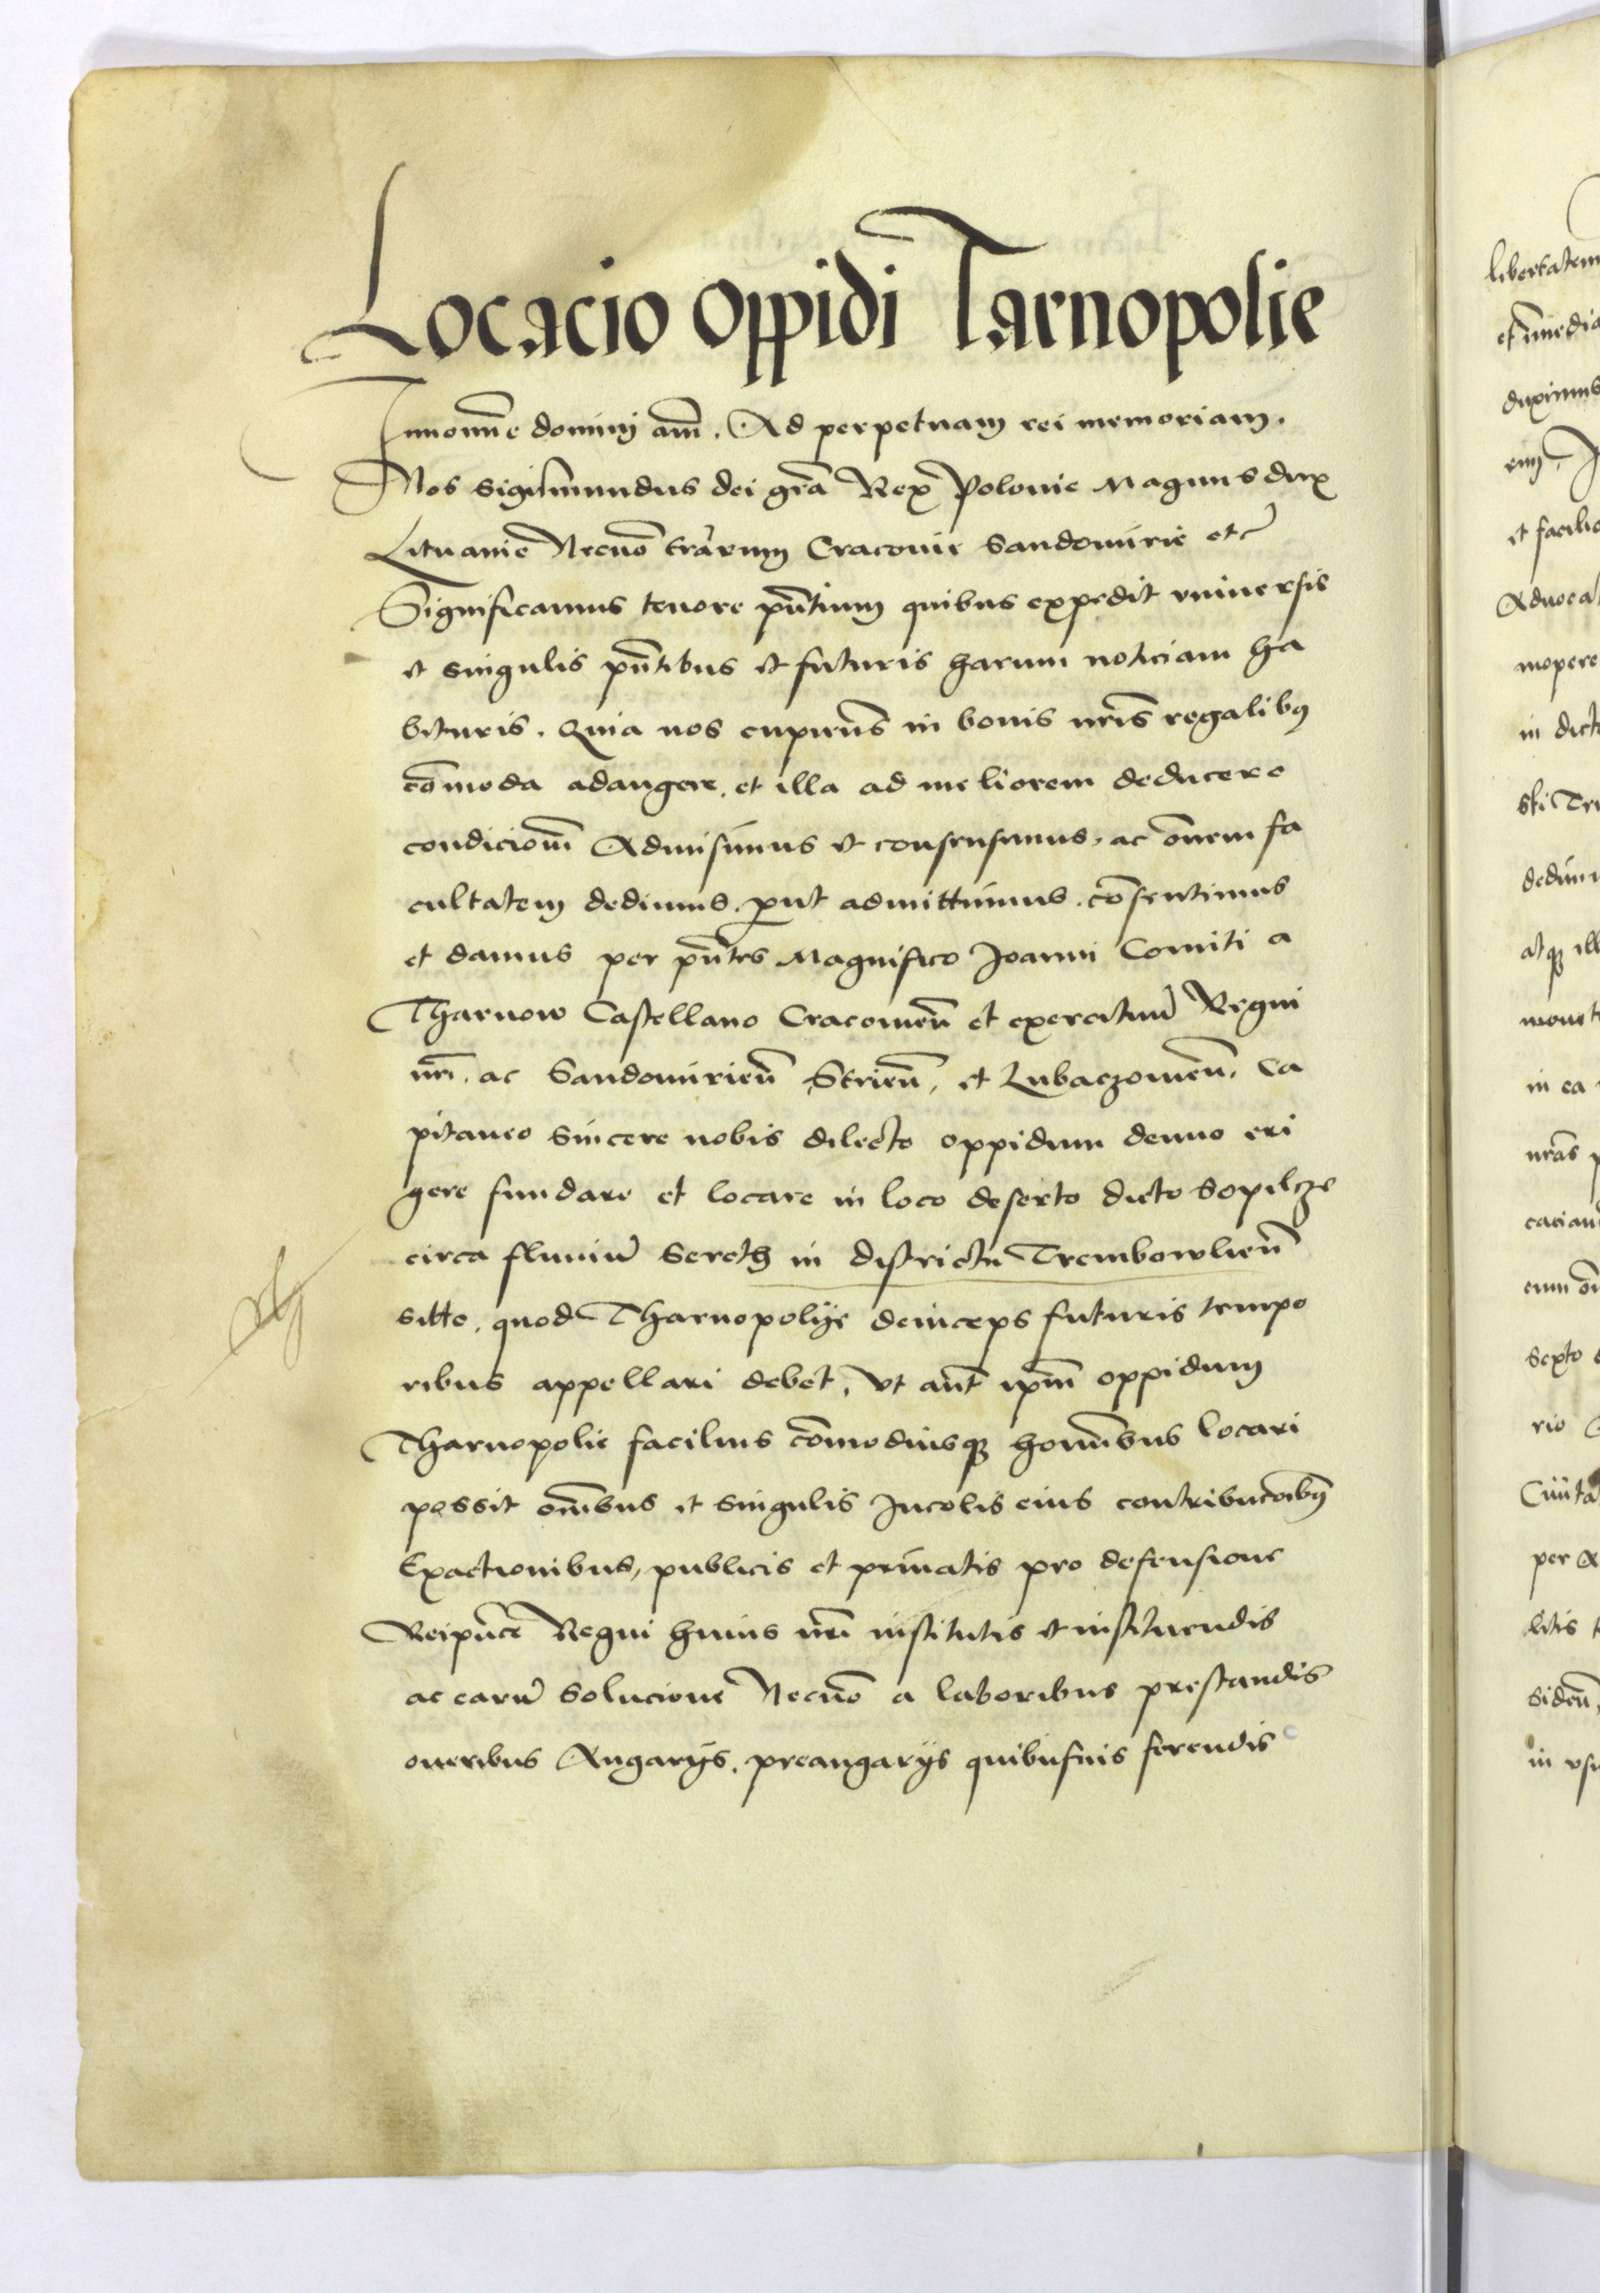 Locacio oppidi Tarnopolie
In nomīe domini amē. Ad perpetuam rei memoriam.
Nos Sigismundus dei gr̄a Rex Polonie Magnus dux
Lituanie Necnō terrarum Cracovie Sandomirie etc
Significamus tenore pn̄tium quibus expedit vniuersis
et singulis pn̄tibus et futuris harum noticiam ha
bituris. Quia nos cupiens in bonis nr̄is regalibꝫ
cōmoda adaugere, et illa ad meliorem deducere
condicionē Admisimus et consensimus, ac om̄em fa
cultatem dedimus. ꝓut admittimus. cōsentimus
et damus per pn̄tes Magnifico Joanni Comiti a
Tharnow Castellano Cracouien̄ et exercituū Regni
nr̄i. ac Sandomirien̄ Strien̄, et Lubaczouien̄. Ca
pitaneo Sincere nobis dilecto oppidum denuo eri
gere fundare et locare in loco deserto dicto Sopilcze
circa fluuiū Sereth in districtu Trembowlien̄
sitto, quod Tharnopolije deinceps futuris tempo
ribus appellari debet, Vt aut̄ ip̄m oppidum
Tharnopolie facilius cōmodiusqꝫ hominibus locari
possit om̄ibus et singulis Incolis eius contribucōibꝫ
Exactionibus, publicis et priuatis pro defensione
Reipu̅ce Regni huius nr̄i institutis et instituendis
ac earū Solucione Necnō a laboribus prestandis
oneribus Angarijs, preangarijs quibusuis ferendis
libertatem
duximus
et facilio
Aduocat
in dict
dedim
in ea
nr̄as
sexto
rio
per A
litis
in vsu